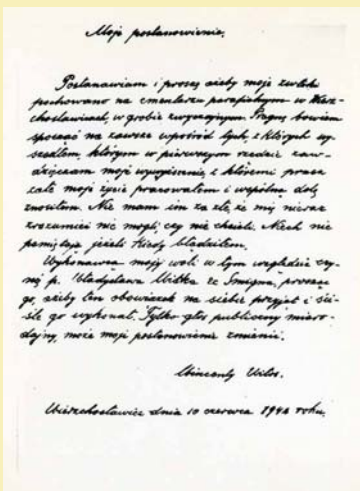 Moje postanowienie.
Postanawiam i proszę ażeby moje zwłoki
pochowano na cmentarzu parafialnym w Wierz-
chosławicach, w grobie zwyczajnym. Pragnę bowiem
spocząć na zawsze wpośród tych, z których wy-
szedłem, którym w pierwszym rzędzie zaw-
dzięczam moje wywyższenie, z któremi przez
całe moje życie pracowałem i wspólną dolę
znosiłem. Nie mam im za złe, że mię nieraz
zrozumieć nie mogli, czy nie chcieli. Niech nie
pamiętają jeżeli kiedy błądziłem.
Wykonawcą mojej woli w tym względzie czy-
nię p. Władysława Mitkę ze Śmigna, prosząc
go, ażeby ten obowiązek na siebie przyjął i ści-
śle go wykonał. Tylko głos publiczny miaro-
dajny, może moje postanowienie zmienić.
Wincenty Witos.
Wierzchosławice dnia 10 czerwca 194 roku.